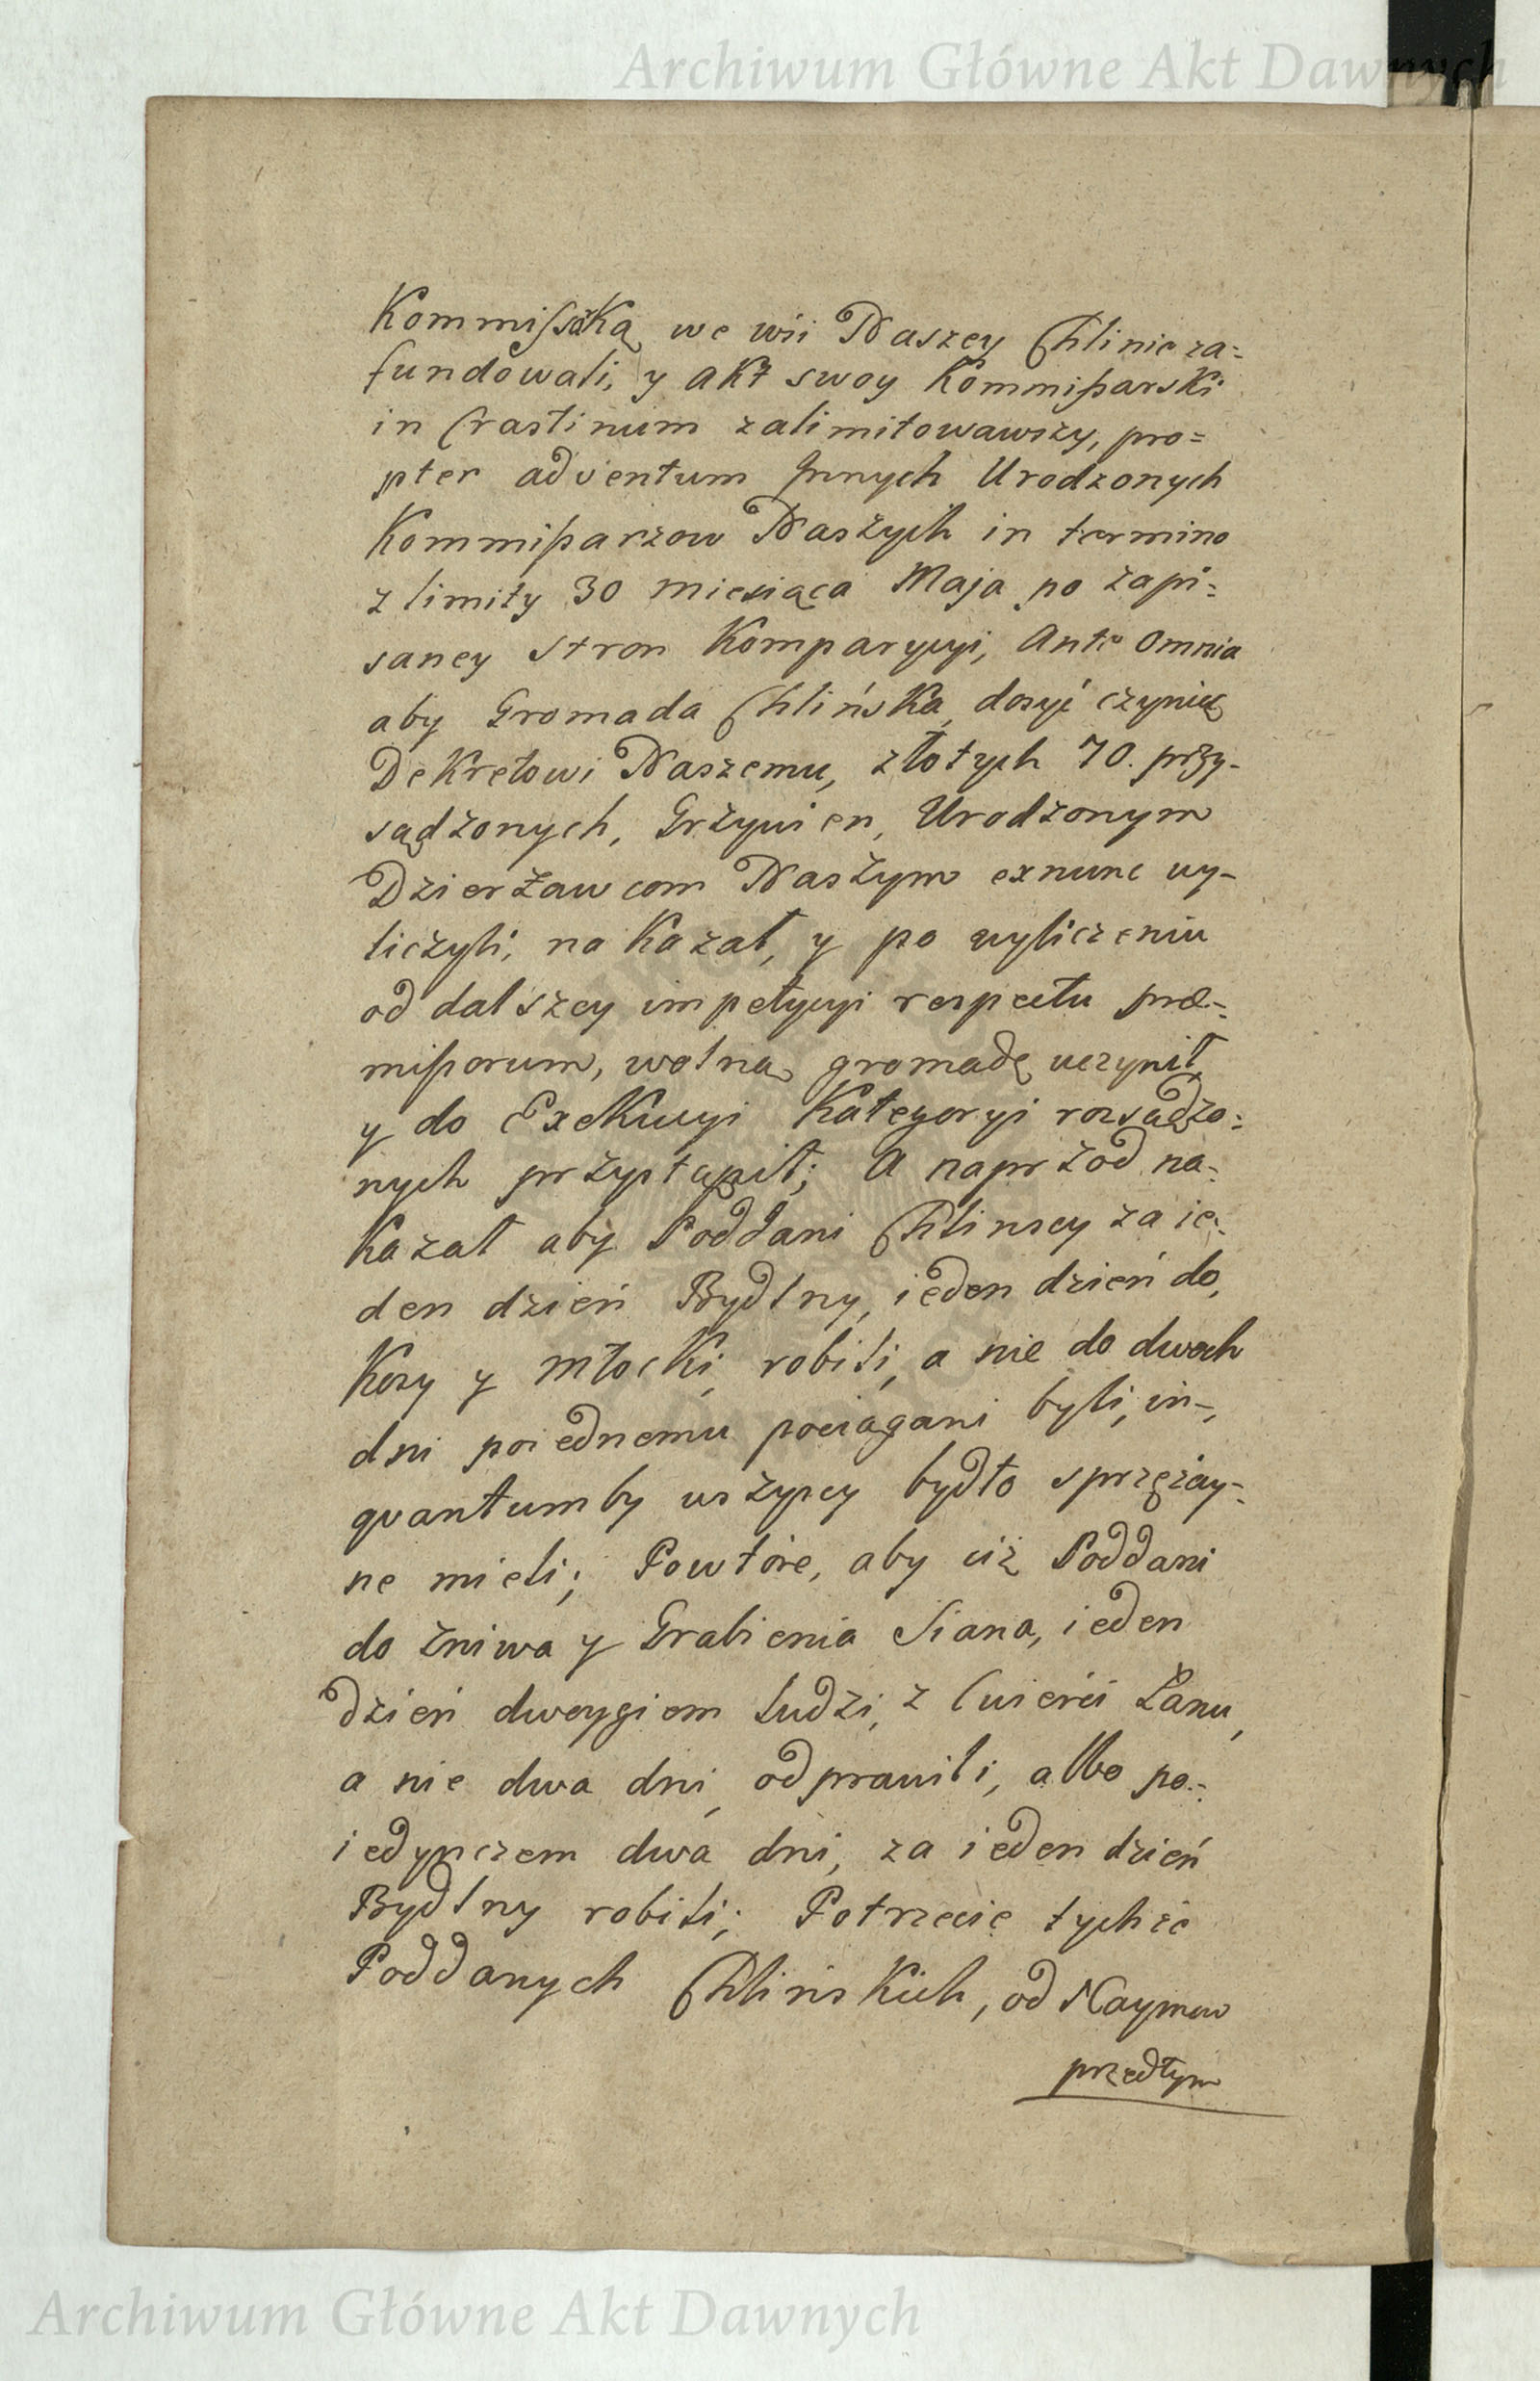 Archiwum Główne Akt Dawnych
Kommissską we wsi Naszey Chlinie za=
fundowali, y akt swoy Kommissarski
in Crastinum zalimitowawszy, pro=
pter adventum Jnnych Urodzonych
Kommissarzow Naszych in termino
z limity 30 miesiąca Maja po zapi=
saney stron Komparycyi, Ante omnia
aby Gromada Chlińska, dosyć czyniąc
Dekretowi Naszemu, złotych 70. przy-
sądzonych, Grzywien, Urodzonym
Dzierżawcom Naszym exnunc wy-
liczyli, nakazał, y po wyliczeniu
od dalszey impetycyi respectu præ-
missorum, wolną gromadę uczynił,
y do Exekucyi Kategoryi rozsądzo=
nych przystąpił; A naprzod na=
kazał aby Poddani Chlinscy za ie=
den dzień Bydlny, ieden dzień do
Kosy y Młocki robili, a nie do dwoch
dni poiednemu pociągani byli, in-
quantumby wszyscy bydło sprzężay-
ne mieli; Powtore, aby ciż Poddani
do żniwa y Grabienia Siana, ieden
dzień dwoygiem ludzi, z Cwierci Łanu,
a nie dwa dni odprawili, albo po-
iedynczem dwa dni, za ieden dzień
Bydlny robili; Potrzecie tychże
Poddanych Chlinskich, od Naymow
przedtym
Archiwum Główne Akt Dawnych